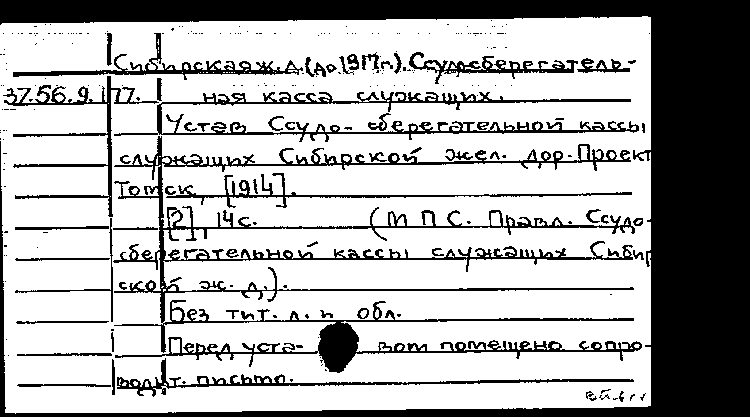 Сибирская ж. д. (до 1917 г.). Ссудо-сберегатель-
37.56.9.177. ная касса служащих.
Устав Ссудо-сберегательной кассы
служащих Сибирской жел. дор. Проект
Томск, [1914].
[2], 14 с. (М П С. Правл. Ссудо-
сберегательной кассы служащих Сибир
ской ж. д.).
Без тит. л. и обл.
Перед уста- вом помещено сопро-
водит. письмо.